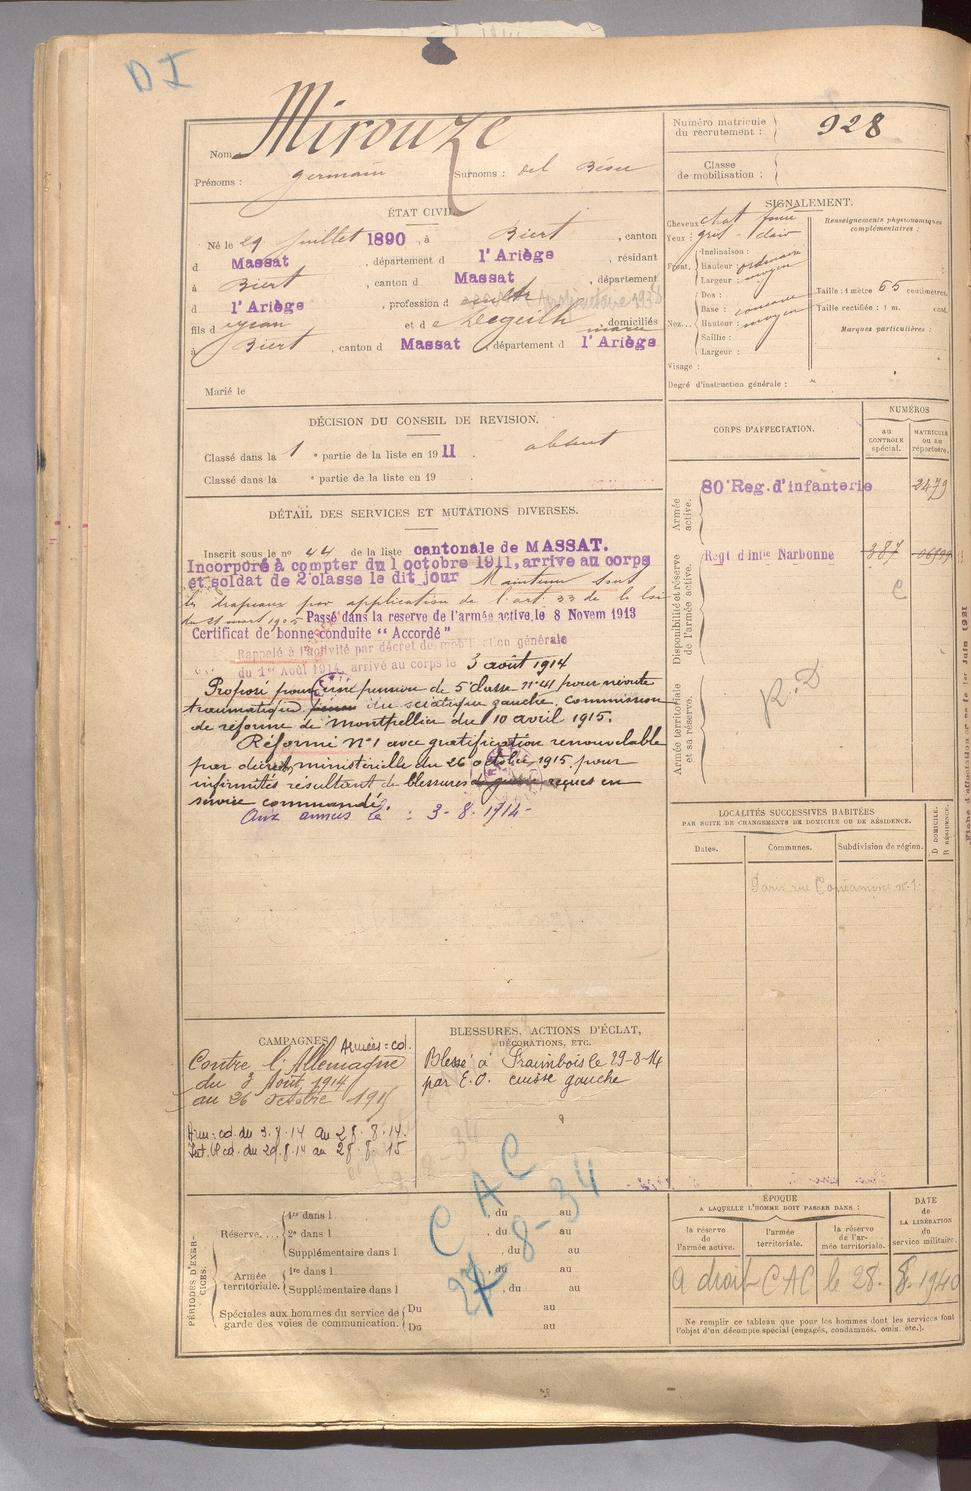 D I
Nom Mirouze
Prénoms : Germain Surnoms : del
Numéro matricule du recrutement : 928
Classe de mobilisation :
ÉTAT CIVIL.
Né le 29 juillet 1890, à Biert, canton
d Massat, département d l'Ariège, résidant
à Biert, canton d Massat, département
d l'Ariège, profession d
fils d Jean et d e Degeilh Marie, domiciliés
à Biert, canton d Massat, département d l'Ariège
Marié le
SIGNALEMENT.
Cheveux chat foncé
Yeux : gris clair
Front. Inclinaison :
Hauteur : ordinaire
Largeur : moyen
Nez... Dos :
Base :
Hauteur : moyen
Saillie :
Largeur :
Visage :
Degré d'instruction générale :
Renseignements physionomiques complémentaires :
Taille : 1 mètre 65 centimètres.
Taille rectifiée : 1 m. cent.
Marques particulières :
DÉCISION DU CONSEIL DE REVISION.
Classé dans la 1 e partie de la liste en 1911. absent
Classé dans la e partie de la liste en 19 .
DÉTAIL DES SERVICES ET MUTATIONS DIVERSES.
Inscrit sous le n° 44 de la liste cantonale de MASSAT.
Incorporé à compter du 1 octobre 1911, arrive au corps
et soldat de 2e classe le dit jour Maintenu sous
les drapeaux par application de l'art 33 de la loi
du 21 mars 1905 Passé dans la reserve de l'armée active, le 8 Novem 1913
Certificat de bonne conduite "Accordé"
Rappelé à l'activité par décret de mobilisation générale
du 1er Août 1914, arrivé au corps le 3 août 1914
Proposé pour une pension de 5e classe n° 41 pour névrite
traumatique du sciatique gauche. commission
de réforme de Montpellier du 10 avril 1915.
Réformé N°1 avec gratification renouvelable
par décision ministérielle du 26 octobre 1915. pour
infirmités résultant de blessures de guerre reçues en
service commandé.
Aux armées le : 3-8-1914-
CORPS D'AFFECTATION.
NUMÉROS
au CONTRÔLE spécial.
MATRICULE ou au répertoire.
Armée active.
80e Reg. d'infanterie 2479
Disponibilité et réserve de l'armée active.
Regt d'infie Narbonne 387
C
Armée territoriale et sa réserve.
R.D
LOCALITÉS SUCCESSIVES HABITÉES
PAR SUITE DE CHANGEMENTS DE DOMICILE OU DE RÉSIDENCE.
Dates. Communes. Subdivision de région. D DOMICILE. R RÉSIDENCE.
Paris rue
CAMPAGNES.
Armées = cd.
Contre l'Allemagne
du 3 Août 1914
au 26 octobre 1915
Arm = cd. du 3.8.14 au 28.8.14.
Int. cd. du 29.8.14 au 28.8.15
BLESSURES, ACTIONS D'ÉCLAT,
DÉCORATIONS, ETC.
Blessé à Fraimbois le 29-8-14
par E.O. cuisse gauche
CAC
28-8-34
PÉRIODES D'EXERCICES.
Réserve.... 1re dans l , du au
2e dans l , du au
Supplémentaire dans l , du au
Armée territoriale. 1re dans l , du au
Supplémentaire dans l , du au
Spéciales aux hommes du service de garde des voies de communication. Du au
Du au
ÉPOQUE
A LAQUELLE L'HOMME DOIT PASSER DANS :
la réserve de l'armée active.
l'armée territoriale.
la réserve de l'armée territoriale.
DATE DE LA LIBÉRATION du service militaire.
a droit CAC le 28. 8. 1940
Ne remplir ce tableau que pour les hommes dont les services font
l'objet d'un décompte spécial (engagés, condamnés, omis, etc.).